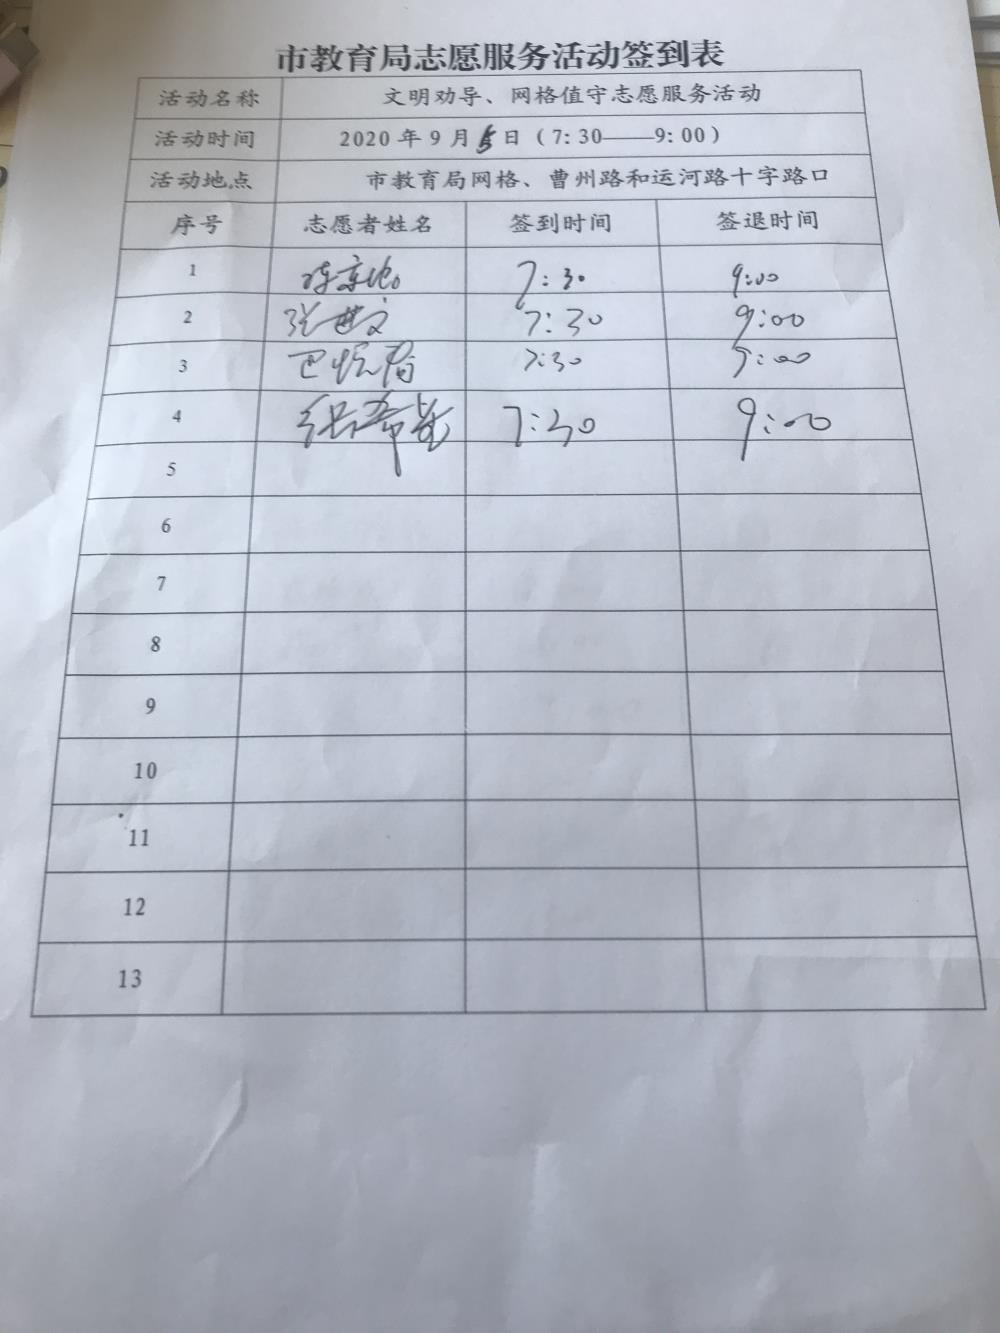 市教育局志愿服务活动签到表
活动名称 文明劝导、网格值守志愿服务活动
活动时间 2020年9月5日（7:30——9:00）
活动地点 市教育局网格、曹州路和运河路十字路口
序号 志愿者姓名 签到时间 签退时间
1 7:30 9:00
2 张世文 7:30 9:00
3 7:30 9:00
4 7:30 9:00
5
6
7
8
9
10
11
12
13